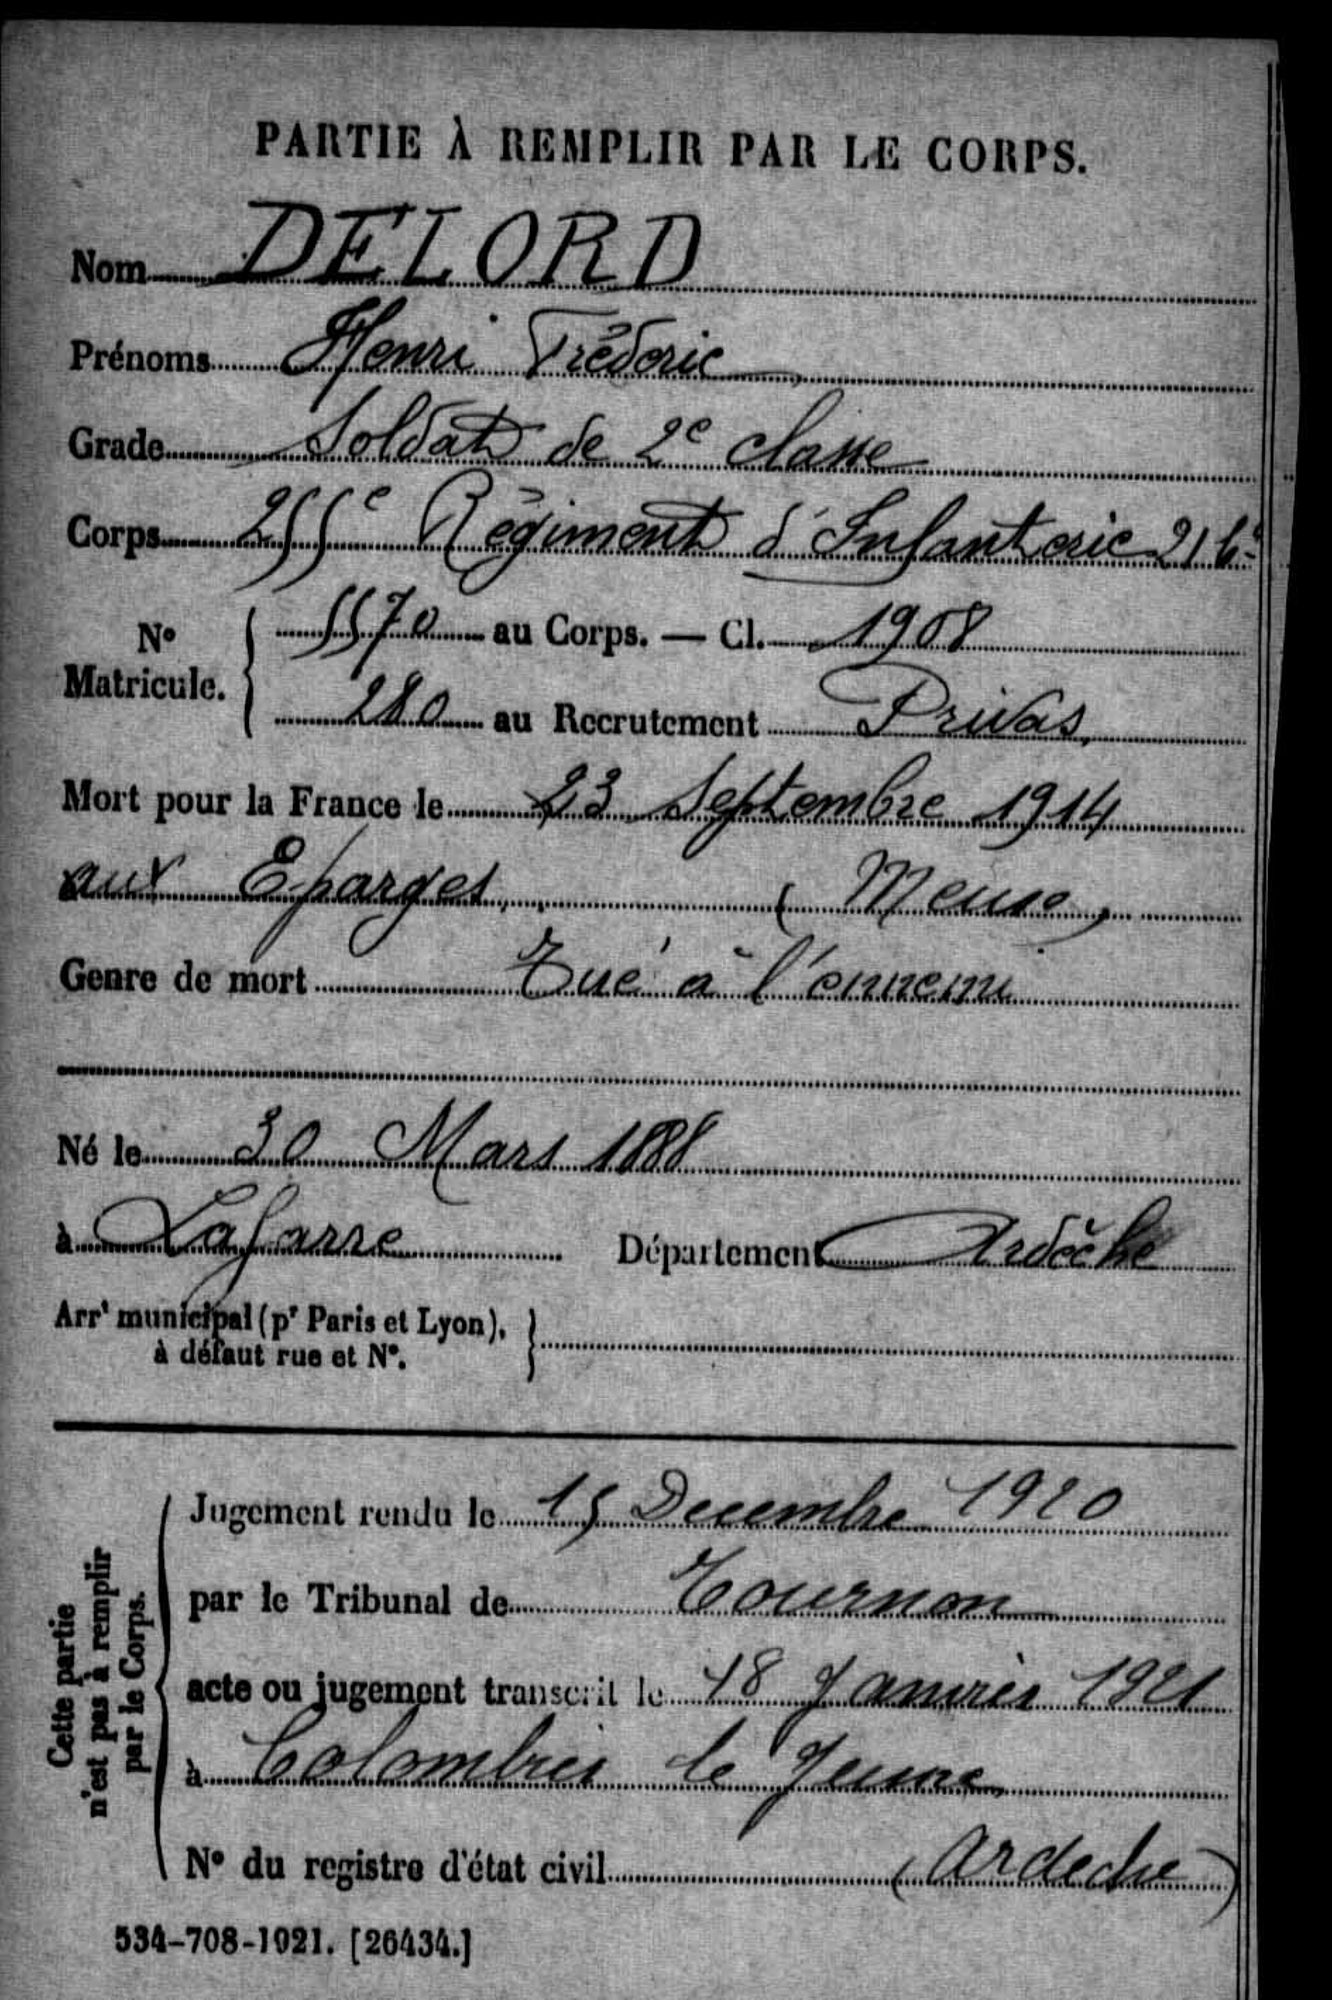 PARTIE À REMPLIR PAR LE CORPS.
Nom DELORD
Prénoms Henri Fréderic
Grade Soldat de 2e classe
Corps 255e Régiment d'Infanterie
N° Matricule. 5570 au Corps. — Cl. 1908
280 au Recrutement Privas.
Mort pour la France le 23 Septembre 1914
aux Eparges, (Meuse)
Genre de mort Tué à l'ennemi
Né le 30 Mars 1888
à Lafarre Département Ardèche
Arrt municipal (pr Paris et Lyon), à défaut rue et N°.
Cette partie n'est pas à remplir par le Corps.
Jugement rendu le 15 Decembre 1920
par le Tribunal de Tournon
acte ou jugement transcrit le 18 Janvier 1921
à Colombier le Jeune
N° du registre d'état civil (Ardeche)
534-708-1921. [26434.]